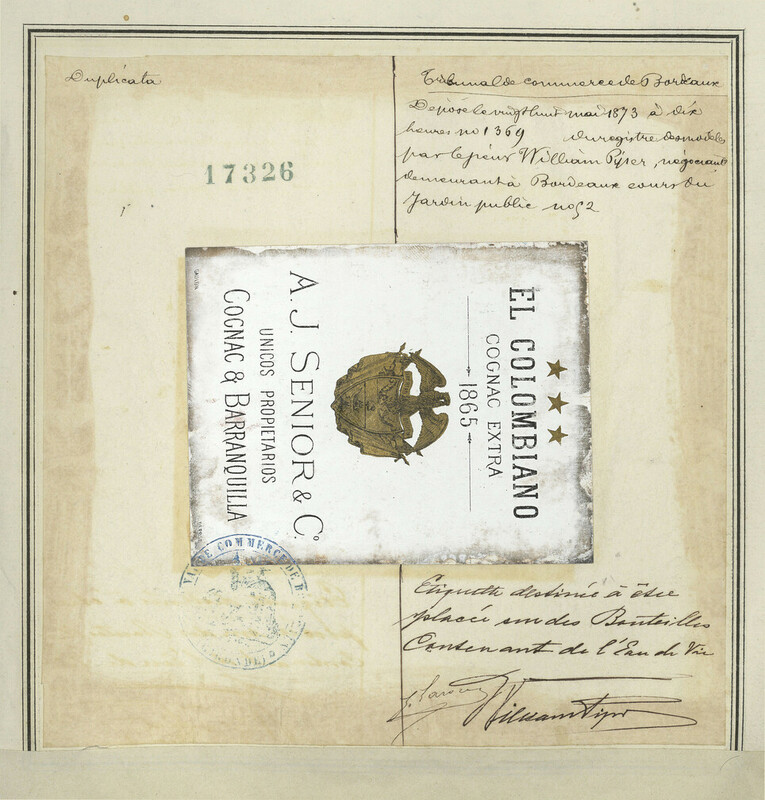 Duplicata
17326
Tribunal de commerce de Bordeaux
Déposé le vingt huit mai 1873 à dix
heures no 1369 du registre des modèles
par le sieur William , négociant
demeurant à Bordeaux cours du
Jardin public no 52
★ ★ ★
EL COLOMBIANO
COGNAC EXTRA
1865
A. J. SENIOR & Cº.
UNICOS PROPIETARIOS
COGNAC & BARRANQUILLA
DE COMMERCE DE B
(GIRONDE)
Etiquette destinée à être
placée sur des Bouteilles
Contenant de l'Eau de Vie
William